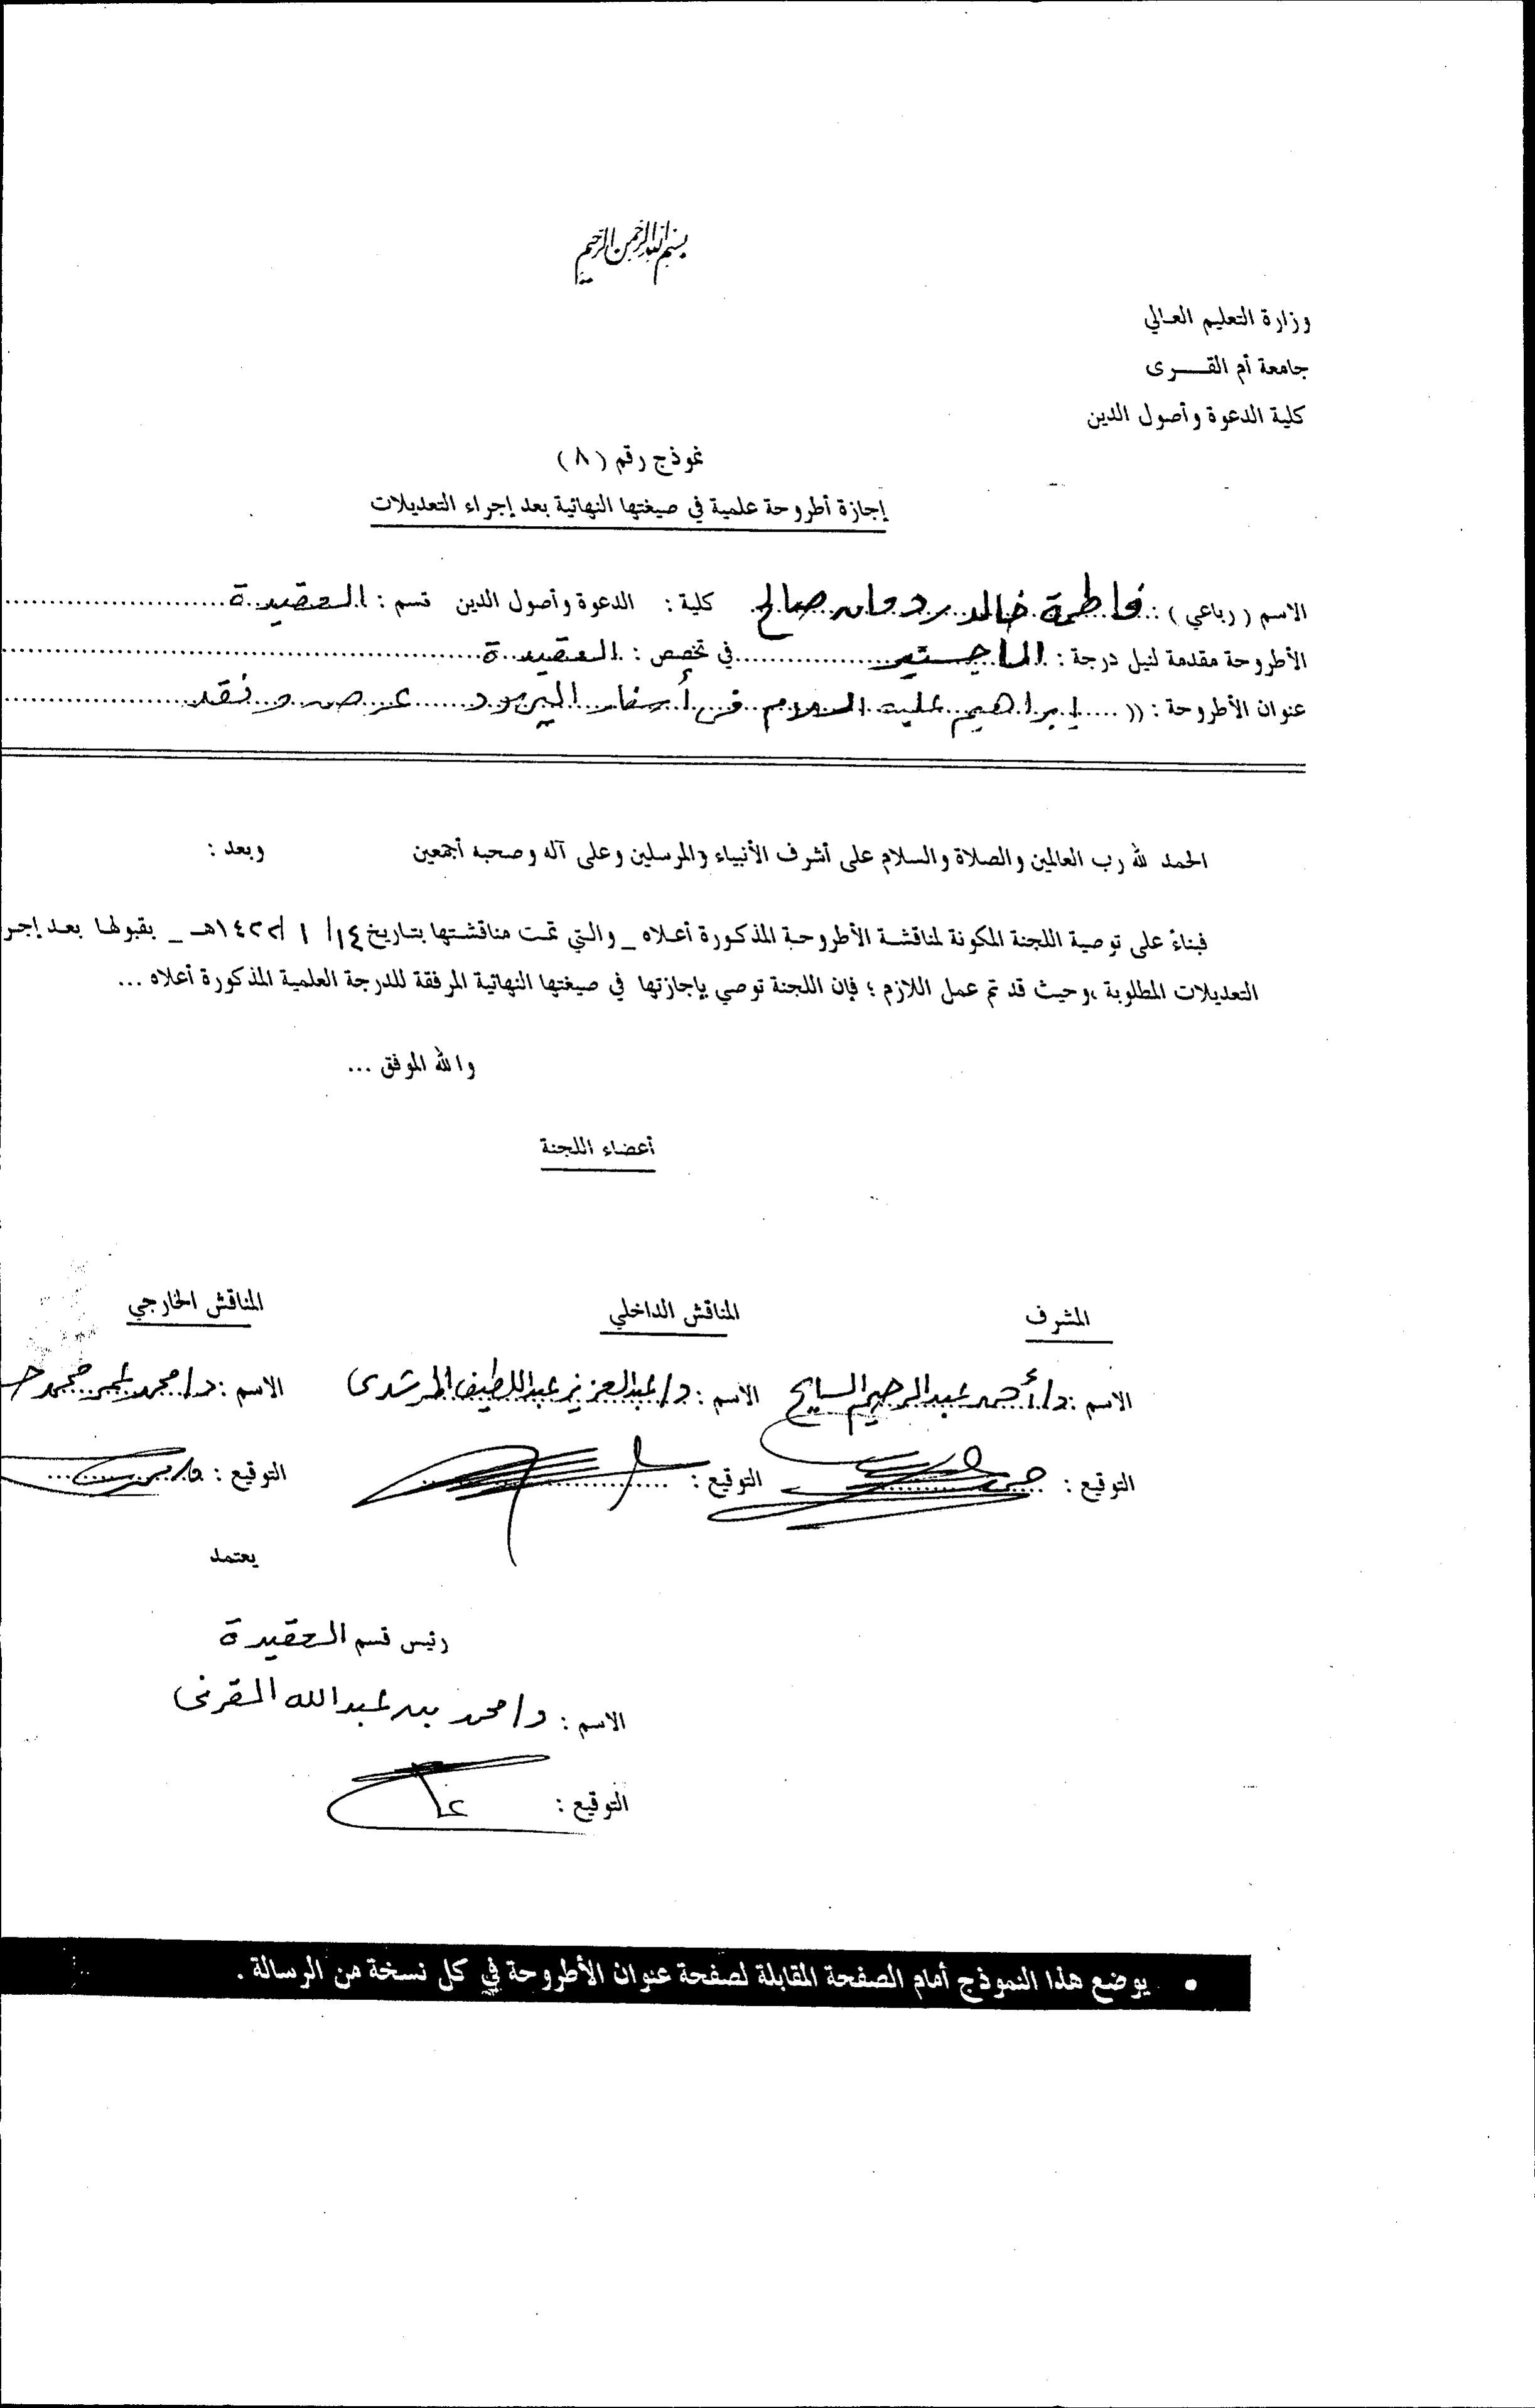 بسم الله الرحمن الرحيم
وزارة التعليم العالي
جامعة أم القـــرى
كلية الدعوة وأصول الدين
نموذج رقم ( ٨ )
إجازة أطروحة علمية في صيغتها النهائية بعد إجراء التعديلات
الاسم ( رباعي ) : فاطمة خالد ردمان صالح كلية : الدعوة وأصول الدين قسم : العقيدة
الأطروحة مقدمة لنيل درجة : الماجستير في تخصص : العقيدة
عنوان الأطروحة : (( إبراهيم عليه السلام في أسفار اليهود عرض ونقد
الحمد لله رب العالمين والصلاة والسلام على أشرف الأنبياء والمرسلين وعلى آله وصحبه أجمعين وبعد :
فبناءً على توصية اللجنة المكونة لمناقشة الأطروحة المذكورة أعلاه _ والتي تمت مناقشتها بتاريخ ١٤/ ١ /١٤٢٢هـ _ بقبولها بعد إجر
التعديلات المطلوبة ،وحيث قد تم عمل اللازم ؛ فإن اللجنة توصي بإجازتها في صيغتها النهائية المرفقة للدرجة العلمية المذكورة أعلاه ...
والله الموفق ...
أعضاء اللجنة
المشرف المناقش الداخلي المناقش الخارجي
الاسم : د/ أحمد عبدالرحيم السايح الاسم : د/ عبدالعزيز عبداللطيف المرشدي الاسم : د/ محمد
التوقيع : التوقيع : التوقيع :
يعتمد
رئيس قسم العقيدة
الاسم : د/ محمد بن عبدالله القرني
التوقيع :
• يوضع هذا النموذج أمام الصفحة المقابلة لصفحة عنوان الأطروحة في كل نسخة من الرسالة .